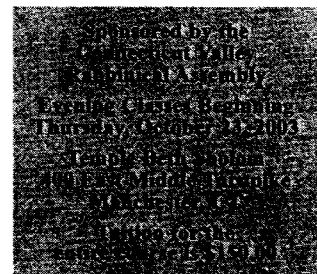 Sponsored by the
Connecticut Valley
Rabbinical Assembly
Evening Classes Beginning
Thursday, October 23, 2003
Temple Beth Sholom
400 East Middle Turnpike
Manchester, CT
Tuition for the